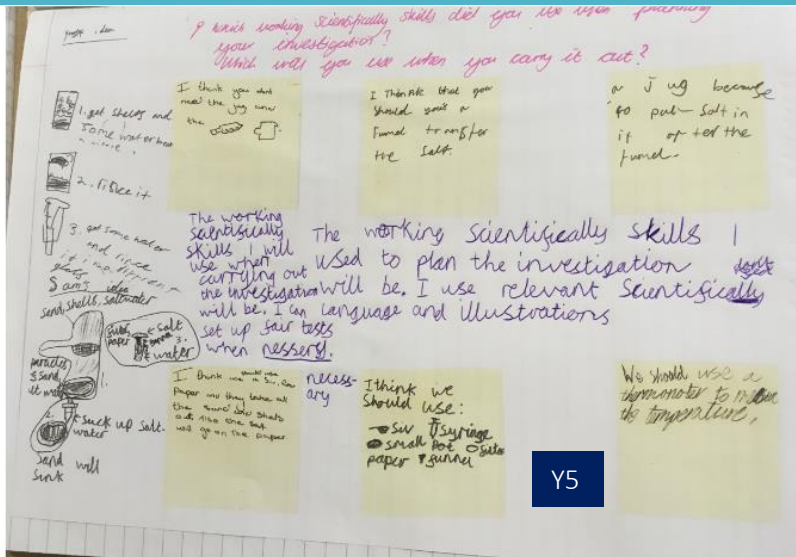 ? which working scientifically skills did you use when planning
your investigation?
Which will you use when you carry it out?
1. get shells and
some water
2. rince it
3. get some water
and rince
it in a different
glass
Sam's idea
sand, shells, saltwater
paper
salt
3.
water
particles
& sand
1.
2.
suck up salt
water
sand will
sink
I think you dont
need the jug
the
I Think that you
should you's a
Funnel transfer
the Salt.
a Jug because
to put Salt in
it after the
funnel.
The working
scientifically
skills I will
use when
carrying out
the investigation
will be. I can
set up fair tests
when nessery.
necess-
ary
The working scientifically skills I
used to plan the investigation
will be. I use relevant scientifically
language and illustrations
I think
paper
the sand
will go on the paper
I think we
should use:
siv syringe
small pot
paper funnel
We should use a
thermomoter to
the temperature.
Y5